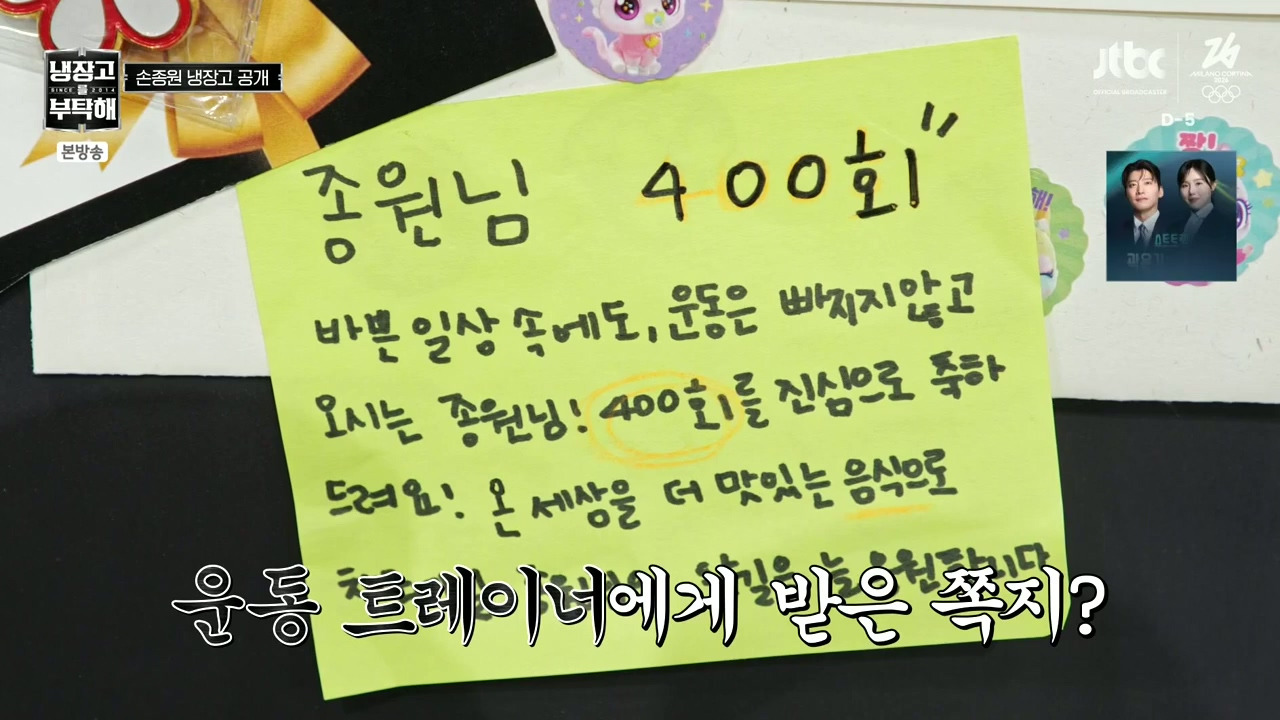 냉장고
SINCE 2014
를
부탁해
본방송
손종원 냉장고 공개
jtbc
OFFICIAL BROADCASTER
MILANO CORTINA
2026
D-5
짠!
해!
종원님 400회"
바쁜 일상 속에도, 운동은 빠지지않고
오시는 종원님! 400회를 진심으로 축하
드려요! 온 세상을 더 맛있는 음식으로
늘 응원합니다
운동 트레이너에게 받은 쪽지?